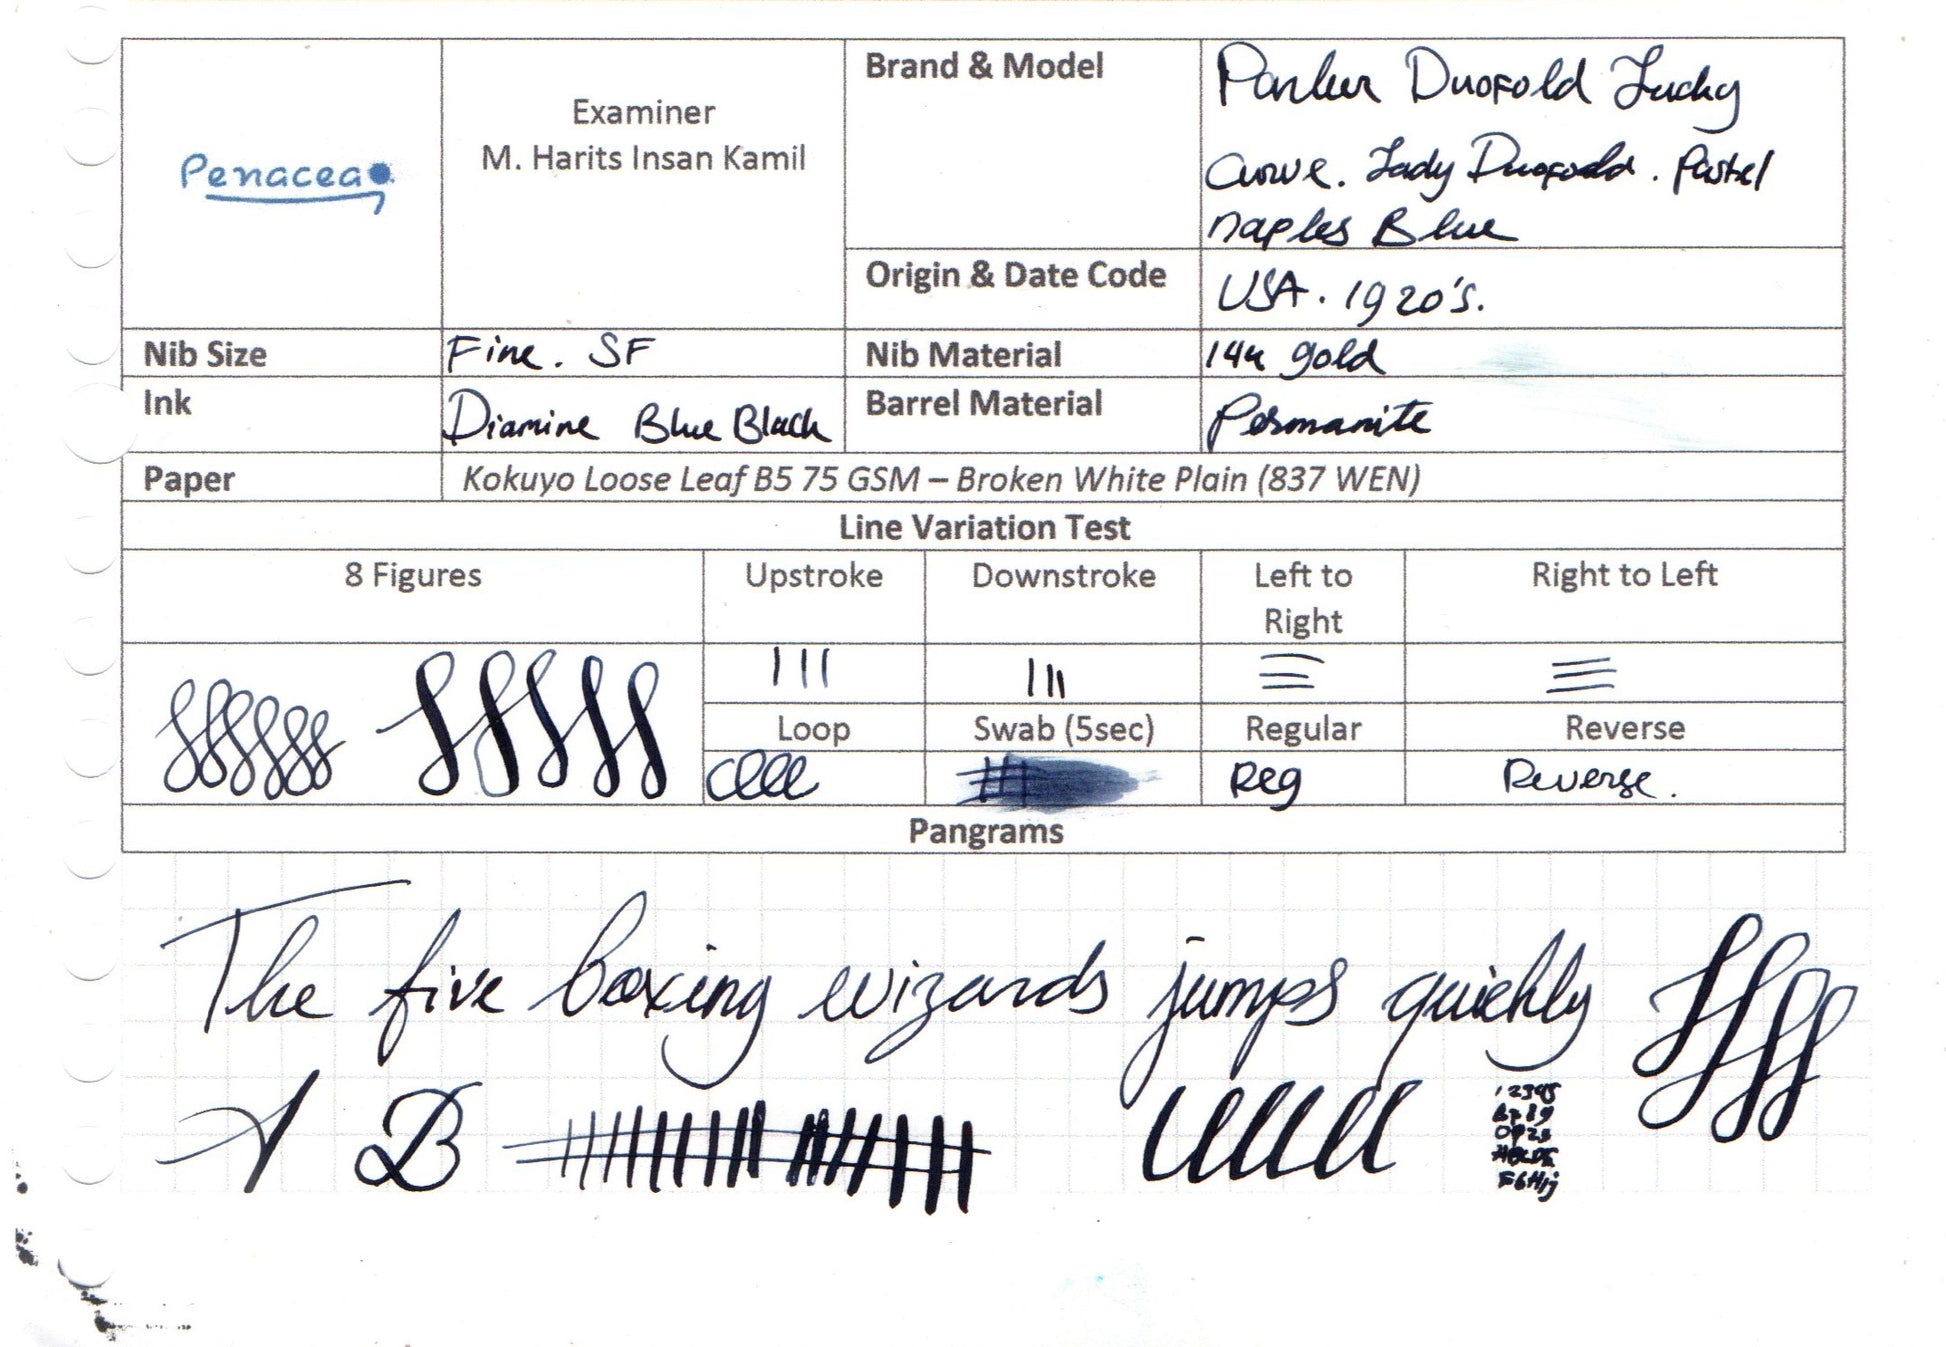 Penacea
Examiner
M. Harits Insan Kamil
Brand & Model
Parker Duofold Lucky
Curve. Lady Duofold. Pastel
naples Blue
Origin & Date Code
USA. 1920's.
Nib Size
Fine. SF
Nib Material
14k gold
Ink
Diamine Blue Black
Barrel Material
Permanite
Paper
Kokuyo Loose Leaf B5 75 GSM – Broken White Plain (837 WEN)
Line Variation Test
8 Figures
Upstroke
Downstroke
Left to
Right
Right to Left
Loop
Swab (5sec)
Regular
Reverse
Reg
Reverse.
Pangrams
The five boxing wizards jumps quickly
A B
12345